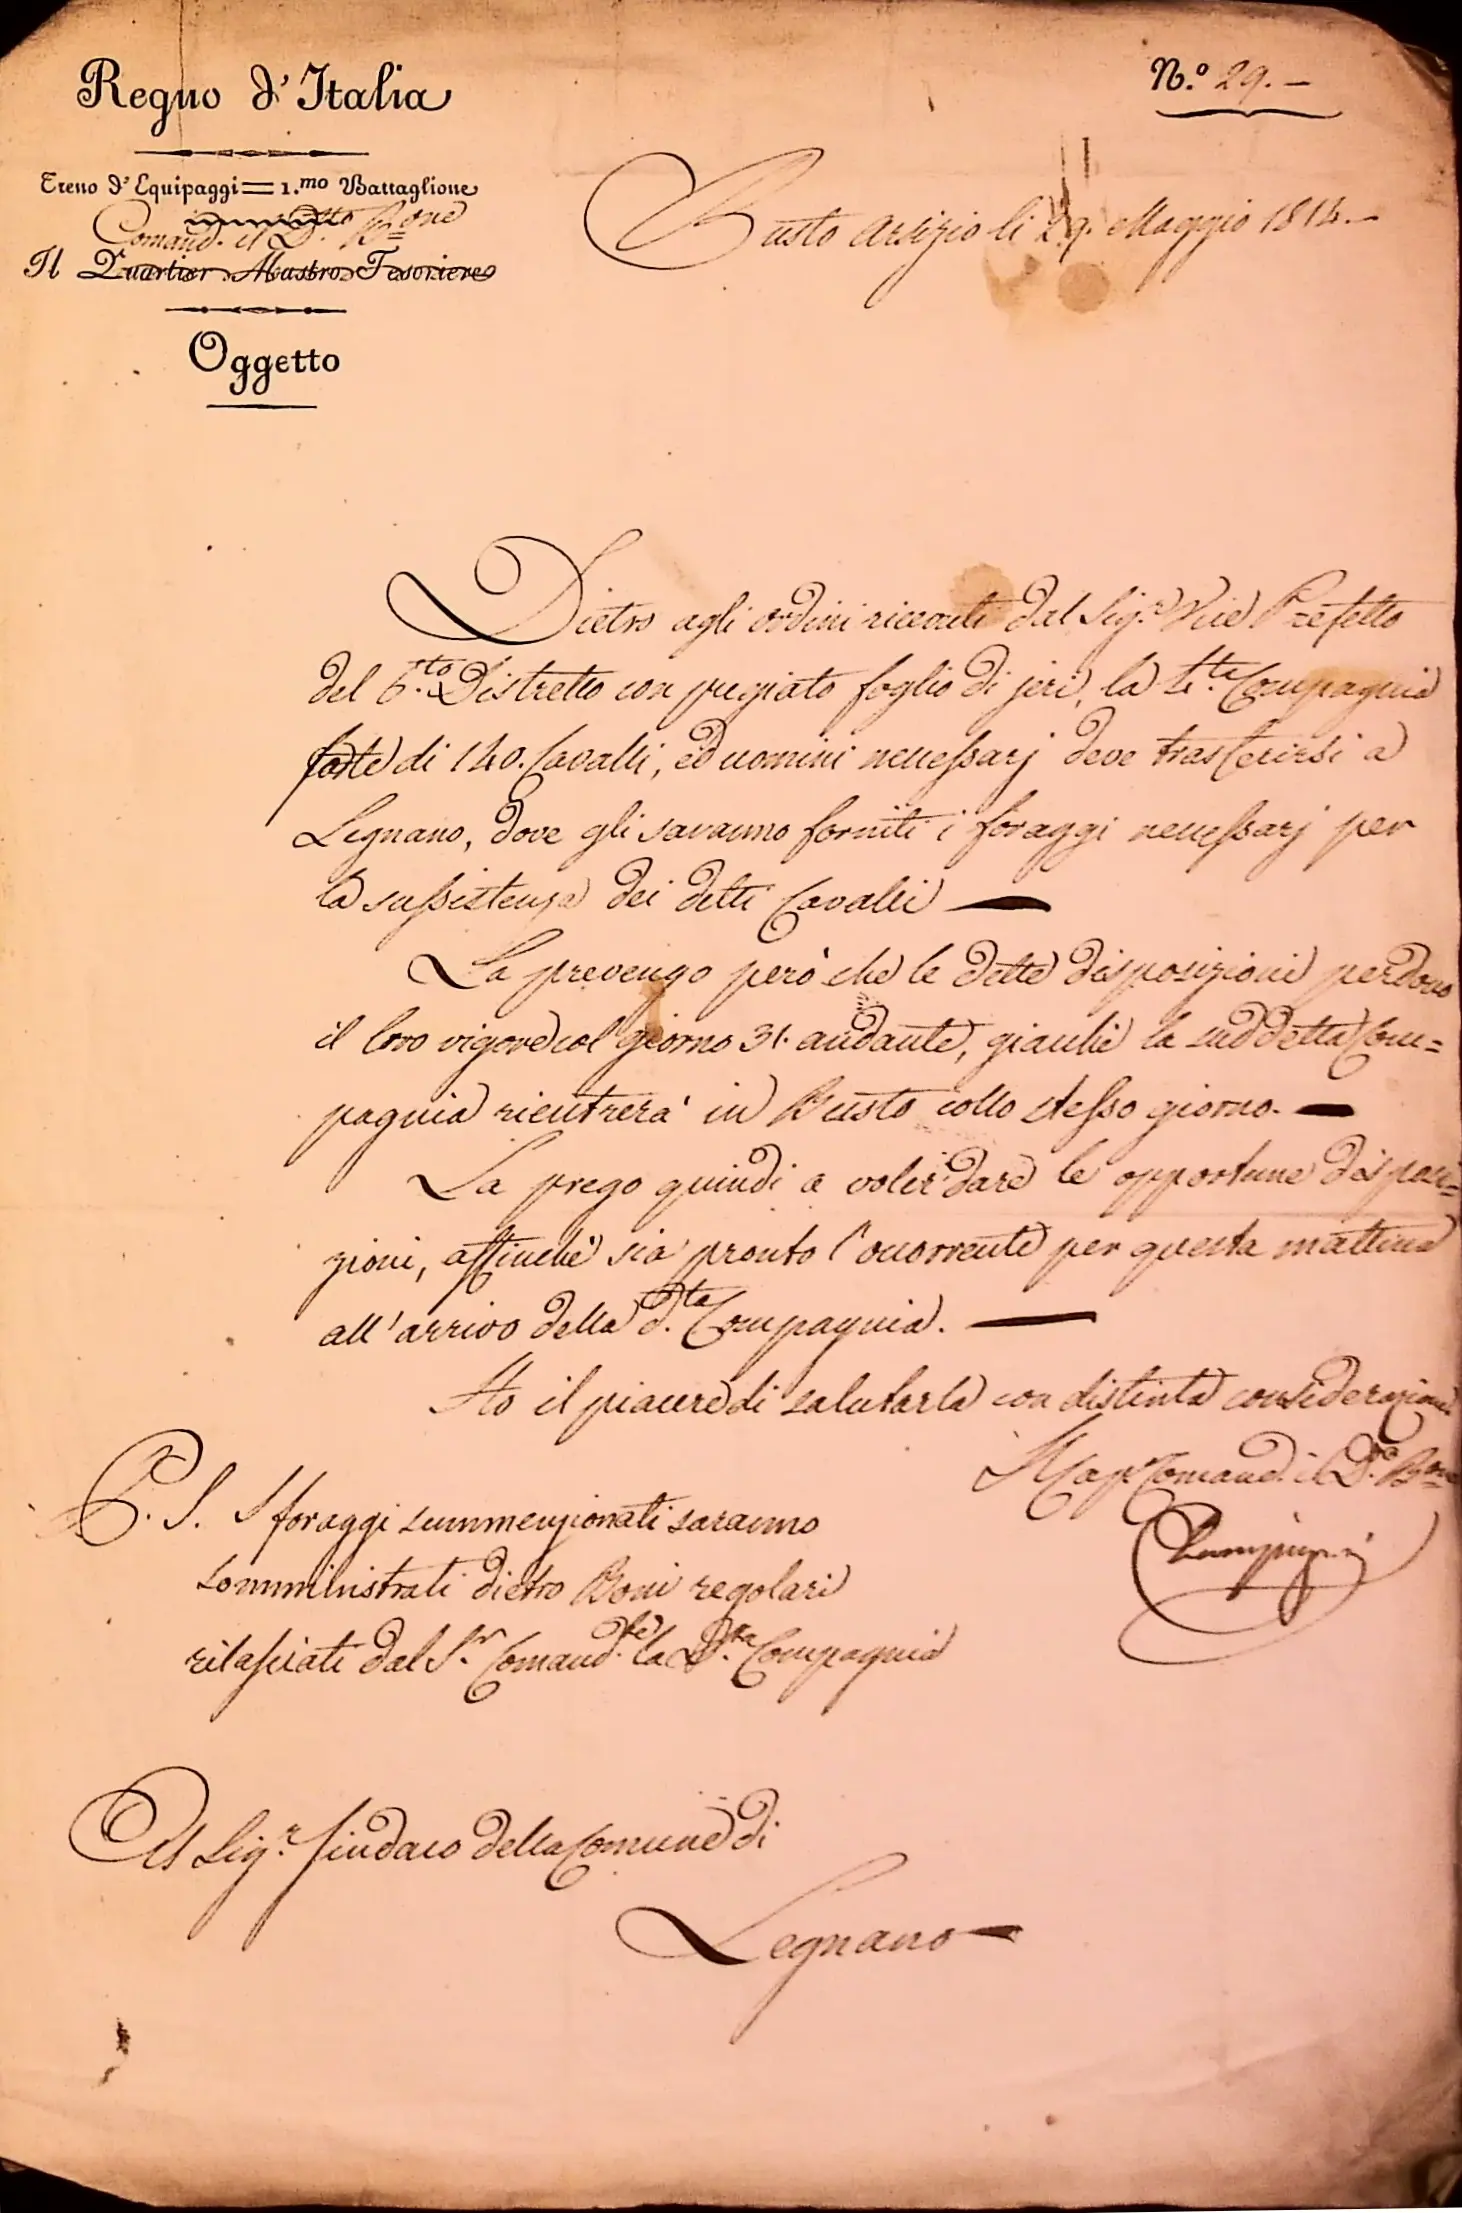 Regno d'Italia
N.º 29.-
Treno d'Equipaggi = 1.mo Battaglione
Comand. il D.tto B=one
Il Quartier Mastro Tesoriere
Busto Arsizio li 29. Maggio 1814.-
Oggetto
Dietro agli ordini ricevuti dal Sig.r Vice Prefetto
del 6.to Distretto con pregiato foglio di jeri, la 4.ta Compagnia
forte di 140. Cavalli, ed uomini necessarj deve trasferirsi a
Legnano, dove gli saranno forniti i foraggi necessarj per
la sussistenza dei detti Cavalli —
La prevengo però che le dette disposizioni perdono
il loro vigore col giorno 31. andante, gianchè la suddetta Com=
pagnia rientrerà in Busto collo stesso giorno. —
La prego quindi a voler dare le opportune disposi=
zioni, affinchè sia pronto l'occorrente per questa mattina
all'arrivo della d.ta Compagnia. —
Ho il piacere di salutarla con distinta considerazione
Il Cap.o Comand. il D.to B=one
P. S. I foraggi summenzionati saranno
somministrati dietro Boni regolari
rilasciati dal S.r Comand.te la D.ta Compagnia
Al Sig.r Sindaco della Comune di
Legnano —